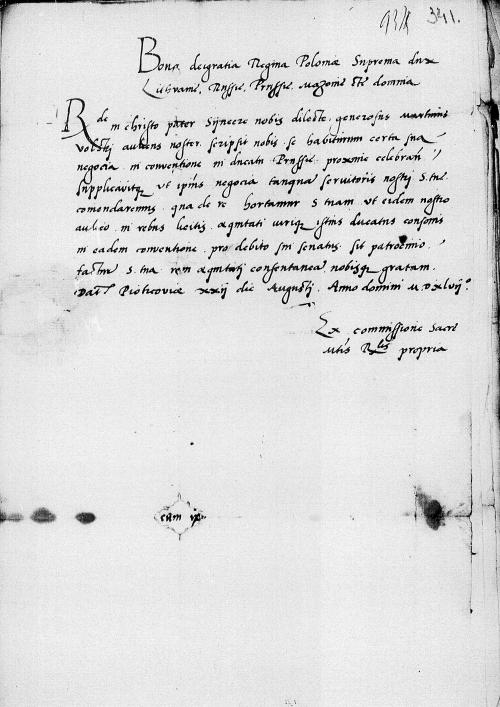 341.
Bona dei gratia Regina Poloniae Suprema dux
Lithvaniae, Russiae, Prussiae, Mazoviae etc domina
Rde in christo pater Syncere nobis dilecte. generosus Martinus
aulicus noster scripsit nobis se habiturum certa sua
negocia in conventione in ducatu Prussiae proxime celebrari
supplicavitque ut ipsius negocia tanquam servitoris nostri S. tuae
comendaremus. qua de re hortamur S tuam ut eidem nostro
aulico in rebus licitis aequitati iurique istius ducatus consonis
in eadem conventione pro debito sui senatus sit patrocinio
factura S. tua rem aequitati consentaneam nobisque gratam.
Dat Piotrcoviae xxij die Augusti. Anno domini M D xlvij°
Ex commissione Sacrae
Mtis Rlis propria